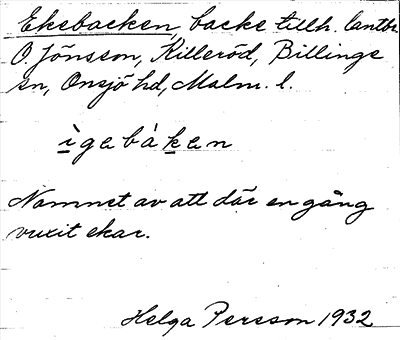 Ekebacken, backe tillh. lantbr.
O. Jönsson, Killeröd, Billinge
sn, Onsjö hd, Malm. l.
ìgebàken
Namnet av att där en gång
vuxit ekar.
Helga Persson 1932